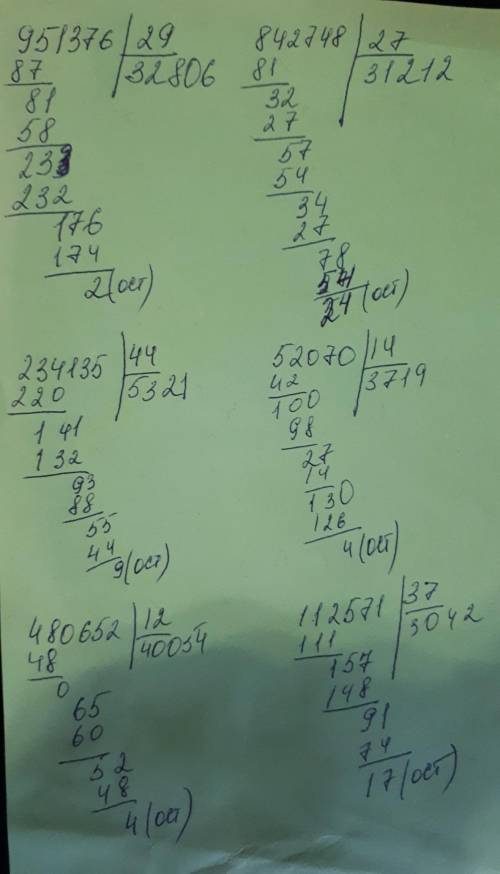 951376 29
87 32806
81
58
233
232
176
174
2(ост)
842748 27
81 31212
32
27
57
54
34
27
78
54
24(ост)
234135 44
220 5321
141
132
93
88
55
44
9(ост)
52070 14
42 3719
100
98
27
14
130
126
4(ост)
480652 12
48 40054
0
65
60
52
48
4(ост)
112571 37
111 3042
157
148
91
74
17(ост)